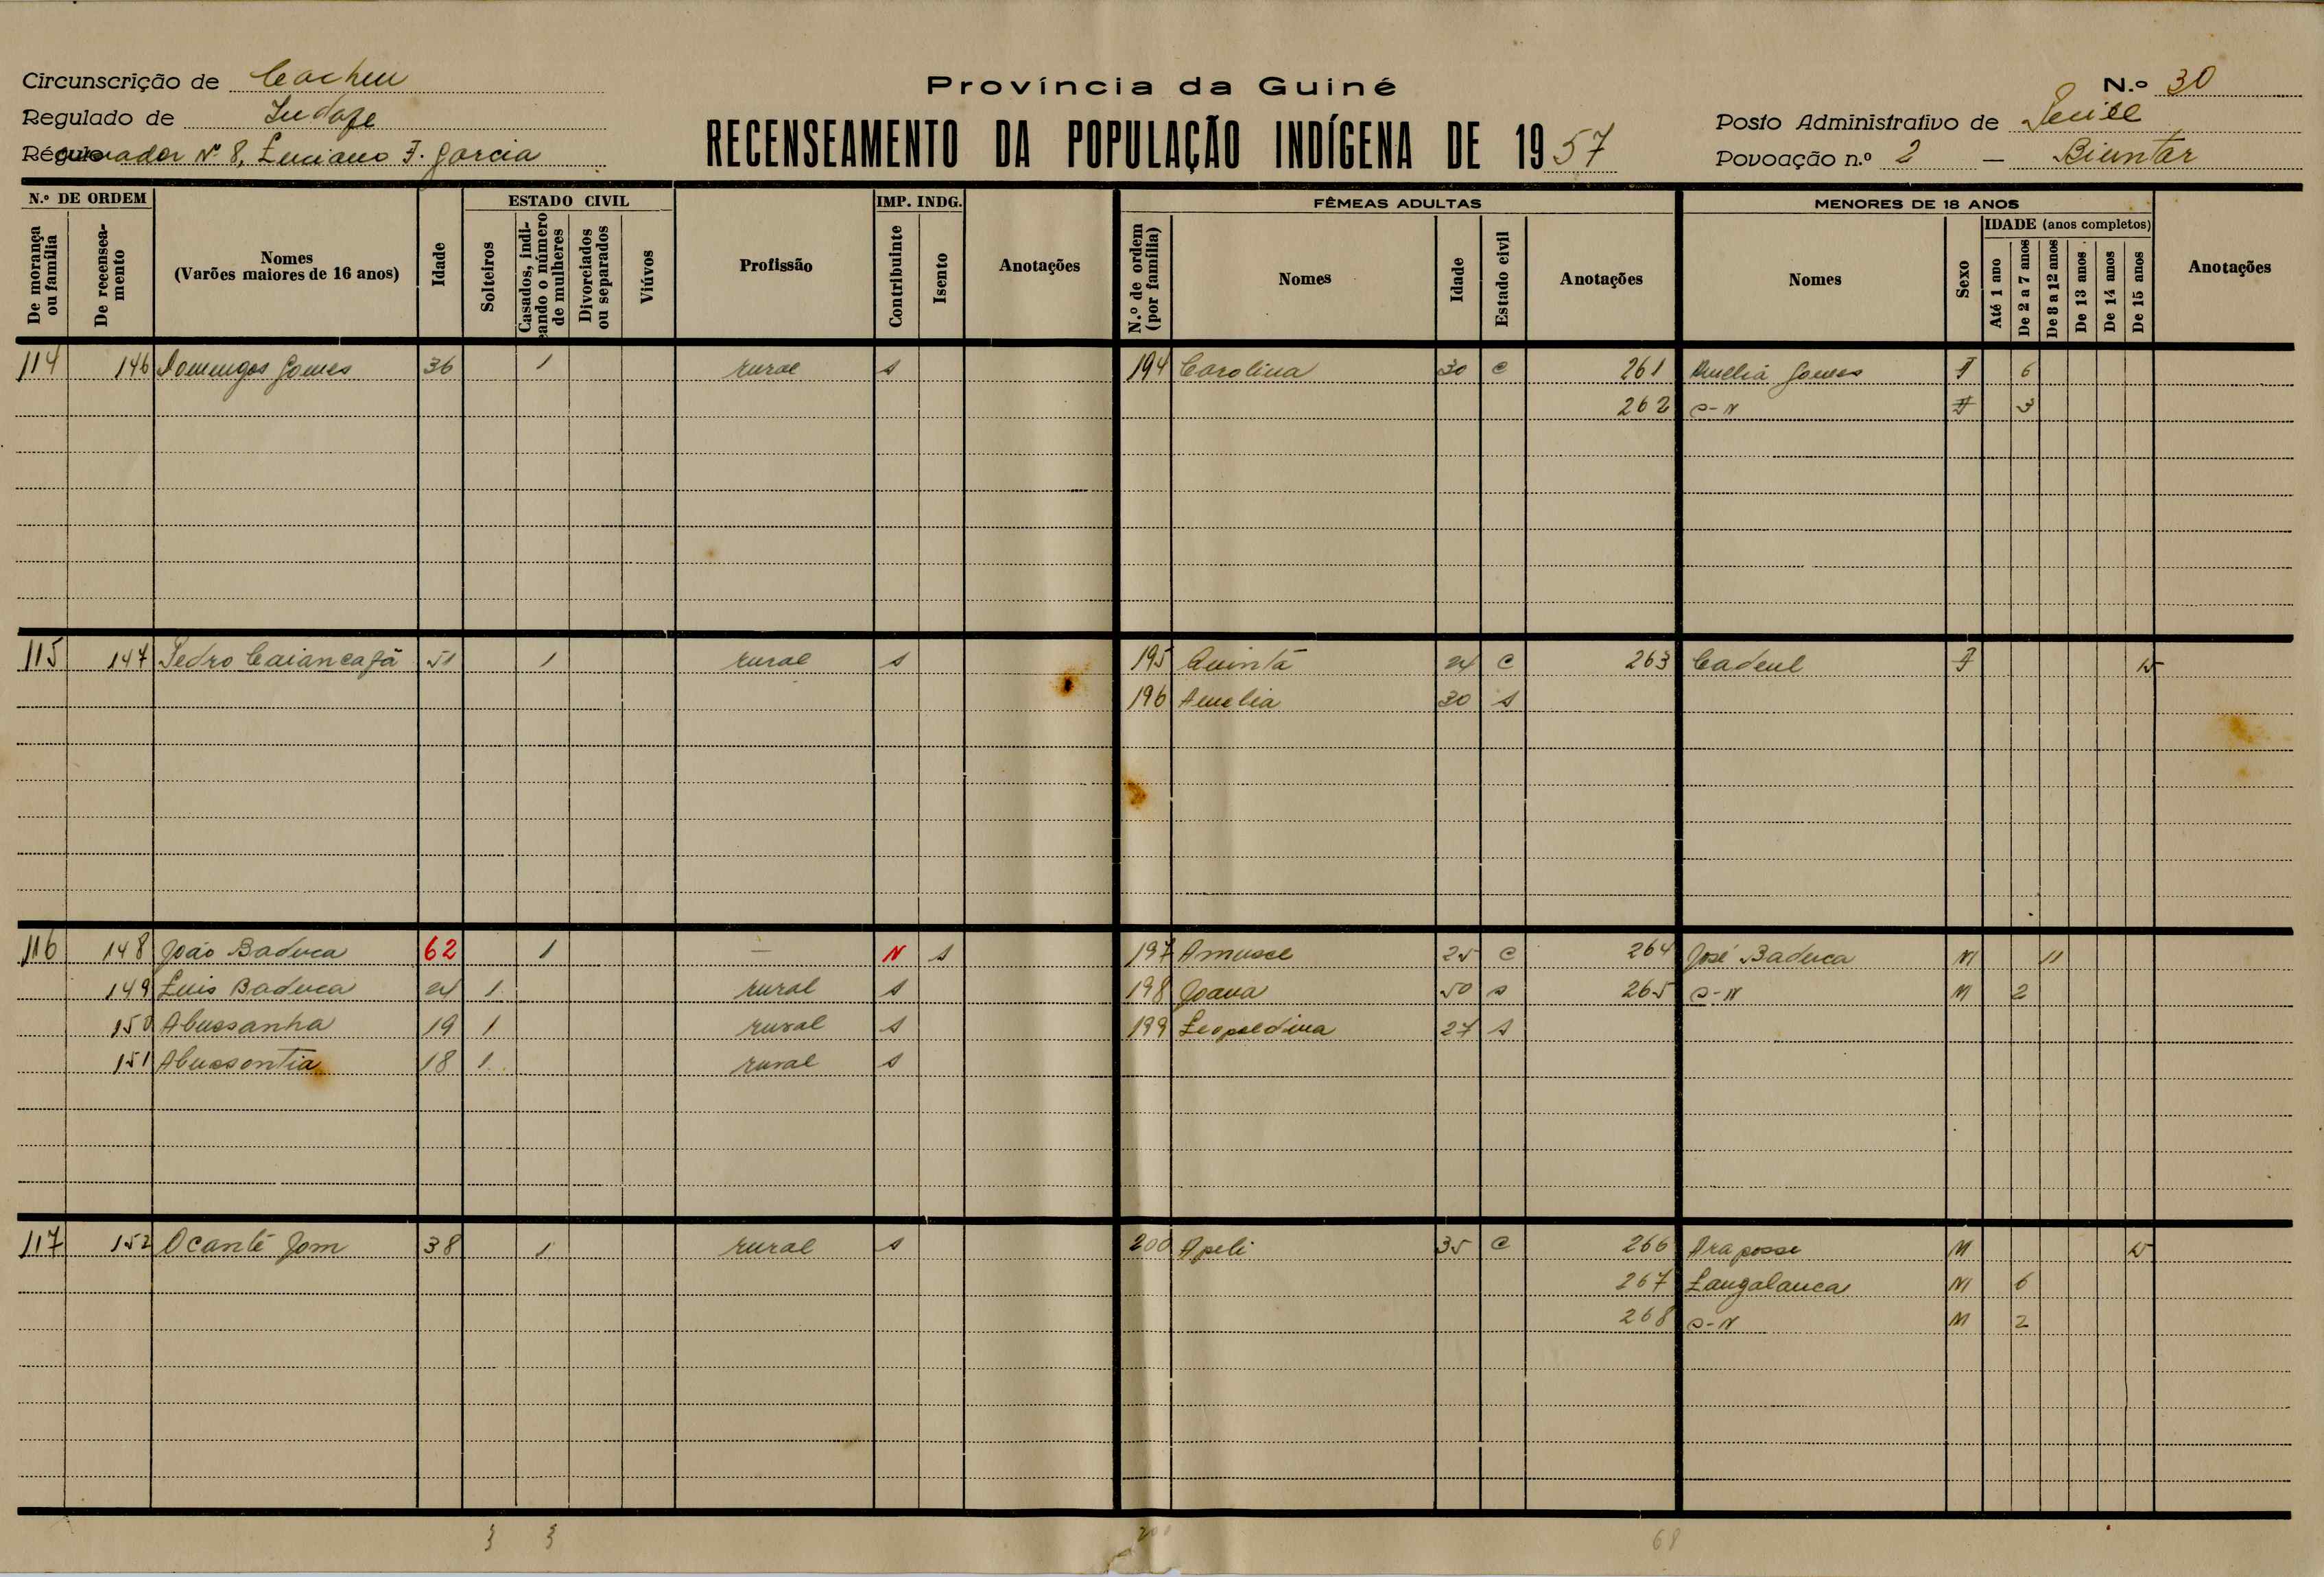 Circunscrição de Cacheu
Província da Guiné
N.º 30
Regulado de
Posto Administrativo de
Nº 8, Luciano F. Garcia
RECENSEAMENTO DA POPULAÇÃO INDÍGENA DE 1957
Povoação n.º 2 — Biuntar
N.º DE ORDEM
ESTADO CIVIL
IMP. INDG.
FÊMEAS ADULTAS
MENORES DE 18 ANOS
De morança ou família
De recenseamento
Nomes (Varões maiores de 16 anos)
Idade
Solteiros
Casados, indicando o número de mulheres
Divorciados ou separados
Viúvos
Profissão
Contribuinte
Isento
Anotações
N.º de ordem (por família)
Nomes
Idade
Estado civil
Anotações
Nomes
Sexo
IDADE (anos completos)
Até 1 ano
De 2 a 7 anos
De 8 a 12 anos
De 13 anos
De 14 anos
De 15 anos
Anotações
114 146 Domingos Gomes 36 1 rural s 194 Carolina 30 c 261 Amelia Gomes F 6
262 s-N F 3
115 147 Pedro Caiancafá 51 1 rural s 195 Quintá c 263 Cadeul F 15
196 Amelia 30 s
116 148 João Baduca 62 1 — N s 197 25 c 264 José Baduca M 11
149 Luis Baduca 1 rural s 198 Joana 50 s 265 s-N M 2
150 Abussanha 19 1 rural s 199 Leopoldina 27 s
151 Abussontia 18 1 rural s
117 152 Ocanté Jom 38 1 rural s 200 Apeli 35 c 266 Araposse M 15
267 Langalanca M 6
268 s-N M 2
3 3 200 68